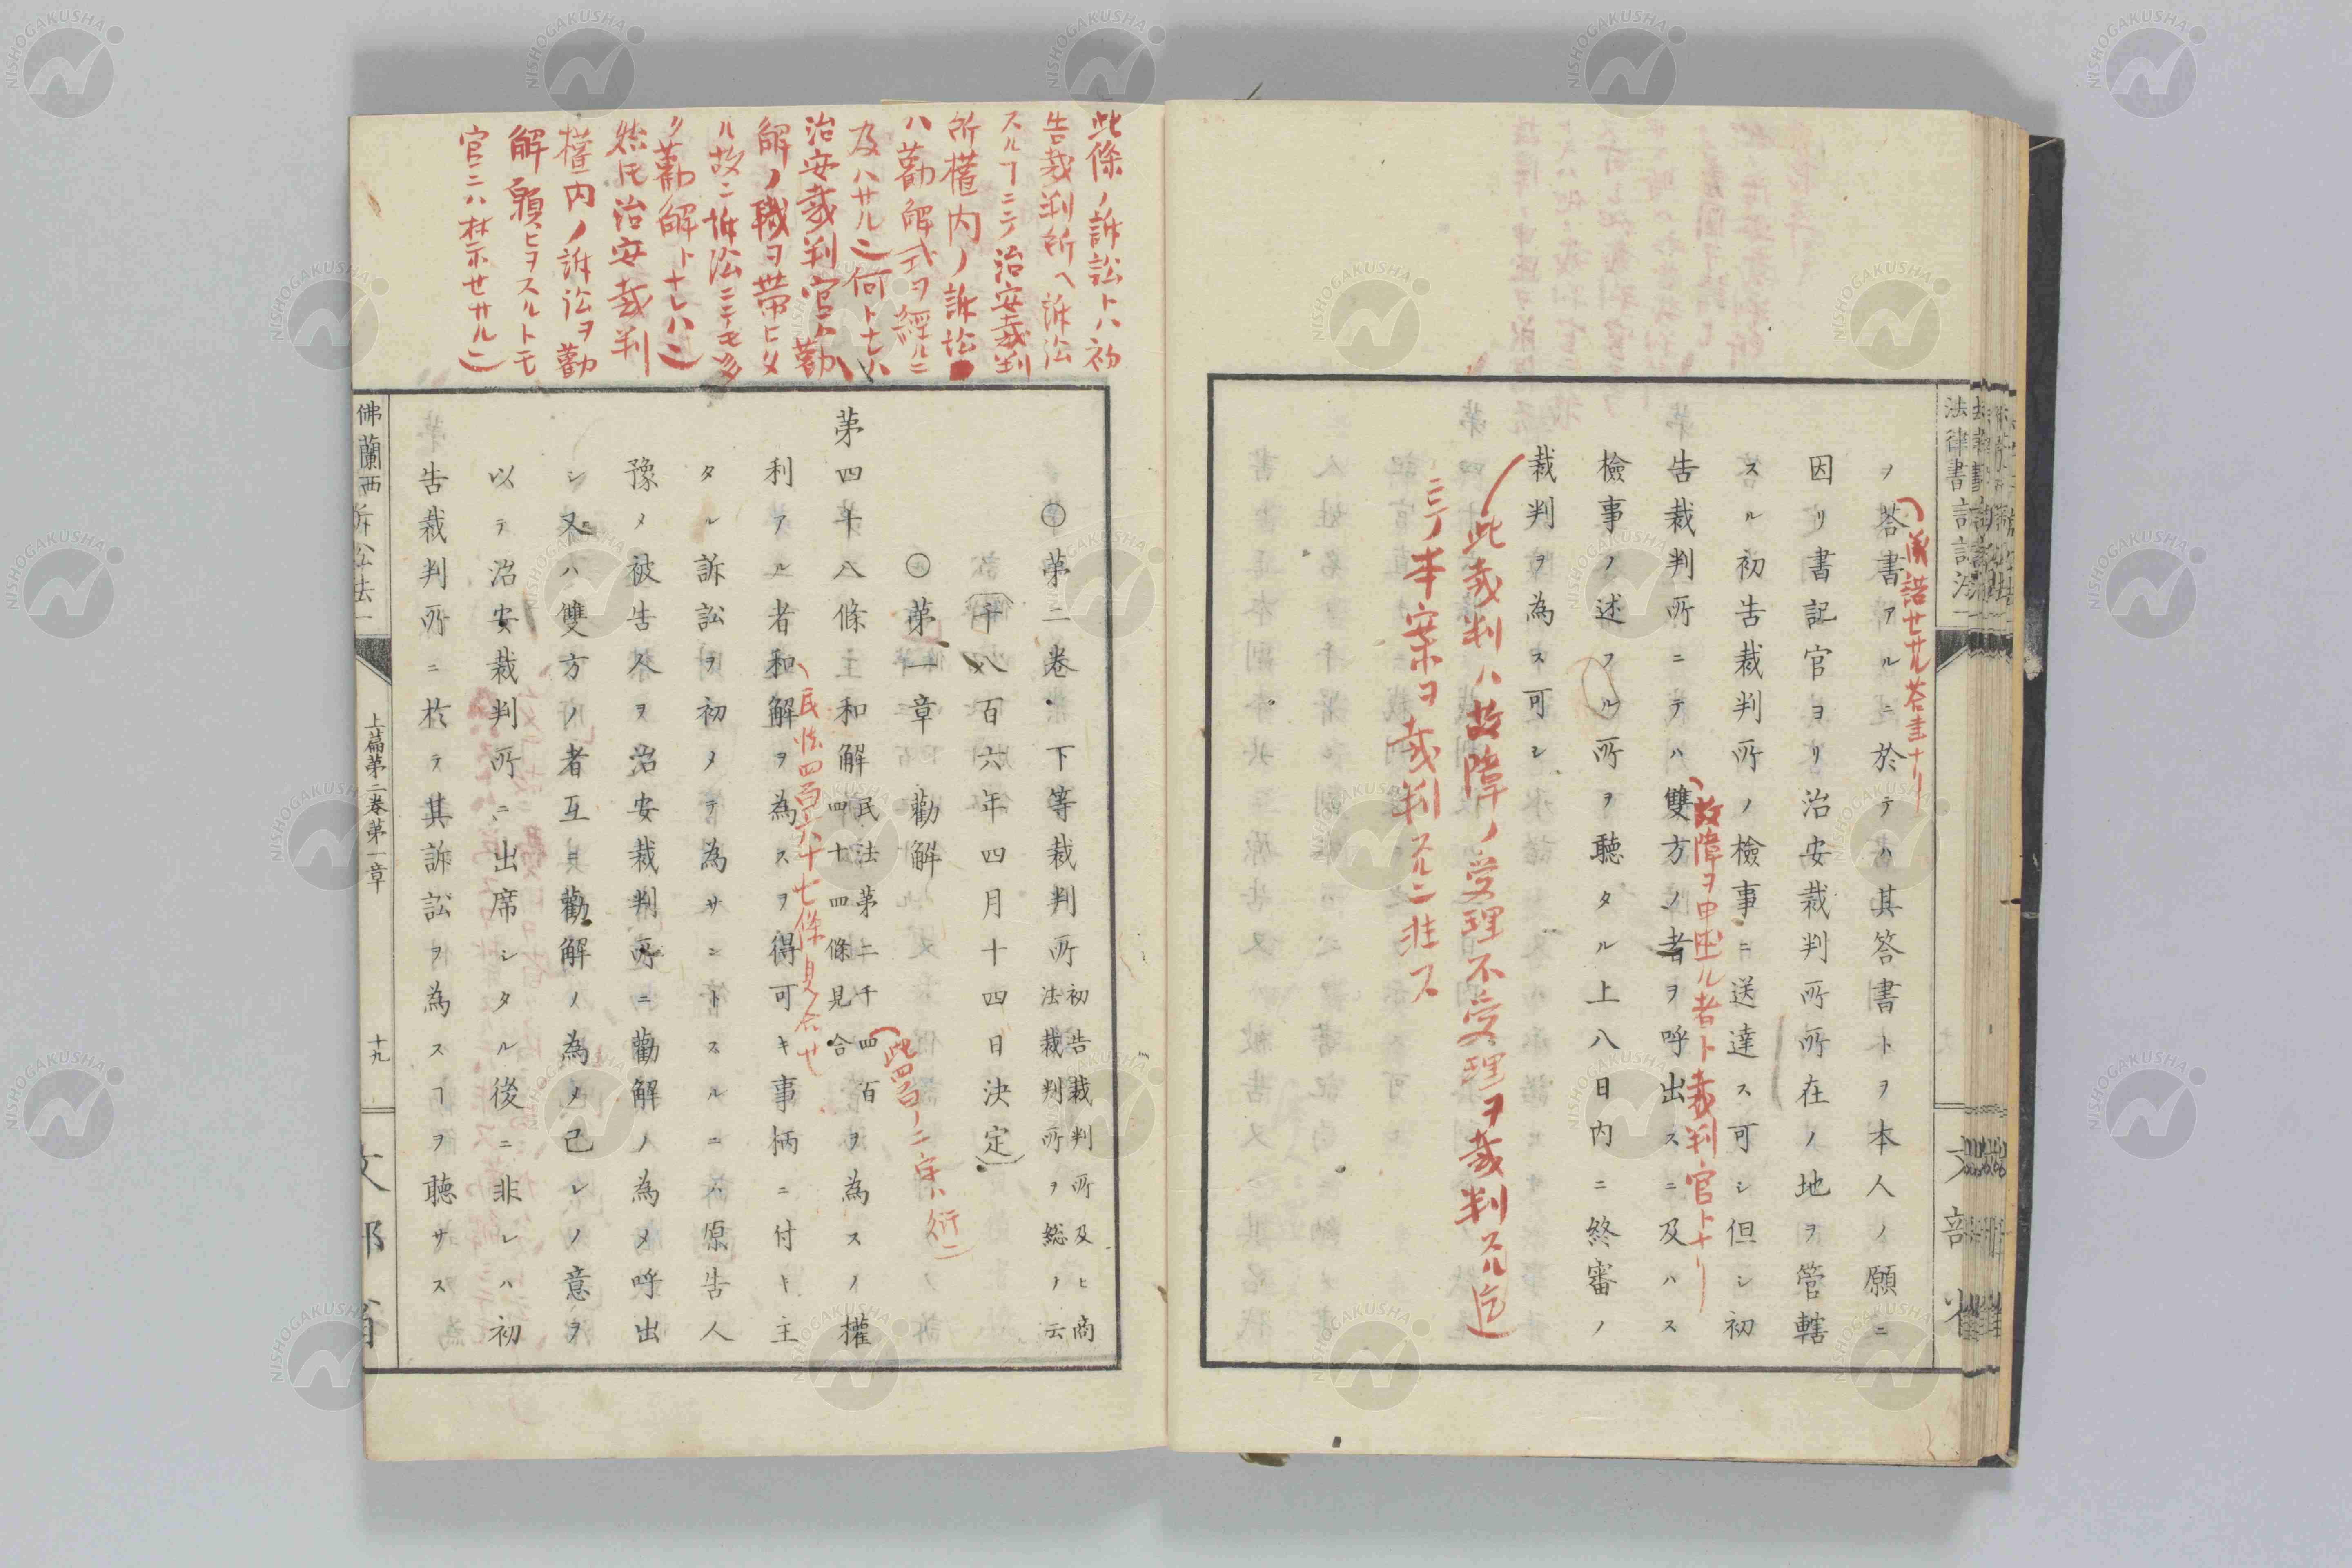 ヲ答書アルニ於テハ其答書トヲ本人ノ願ニ
因リ書記官ヨリ治安裁判所所在ノ地ヲ管轄
スル初告裁判所ノ檢事ニ送達ス可シ但シ初
告裁判所ニテハ雙方ノ者ヲ呼出スニ及ハス
故障ヲ申出ル者ト裁判官トナリ
檢事ノ述フル所ヲ聽タル上八日内ニ終審ノ
裁判ヲ為ス可シ
此裁判ハ故障ノ受理不受理ヲ裁判スル迄
ニテ本案ヲ裁判スルニ非ス
法律書訴訟法一
此條ノ訴訟トハ初
告裁判所ヘ訴訟
スルヿニテ治安裁判
所権内ノ訴訟
ハ勸解式ヲ經ルニ
及ハサル也何トナレハ
治安裁判官ハ勸
解ノ職ヲ帯ヒタ
ル故ニ訴訟ニテモ多
ク勸解トナレハ也
然トモ治安裁判
権内ノ訴訟ヲ勸
解願ヒヲスルトモ
官ニハ禁セサル也
○第三卷 下等裁判所 初告裁判所及ヒ商法裁判所ヲ総ノ云
(千八百六年四月十四日決定)
○第一章 勸解
此四百ノ二字ハ衍也
第四十八條 主和解 民法第二千四百四十四條見合 ヲ為スノ權
民法四百六十七條見合セ
利アル者和解ヲ為スヲ得可キ事柄ニ付キ主
タル訴訟ヲ初メテ為サントスルニハ原告人
豫メ被告人ヲ治安裁判所ニ勸解ノ為メ呼出
シ又ハ雙方ノ者互ニ勸解ノ為メ己レノ意ヲ
以テ治安裁判所ニ出席シタル後ニ非レハ初
告裁判所ニ於テ其訴訟ヲ為スヿヲ聽サス
佛蘭西訴訟法一
上篇第二卷第一章
十九
文部省
NISHOGAKUSHA